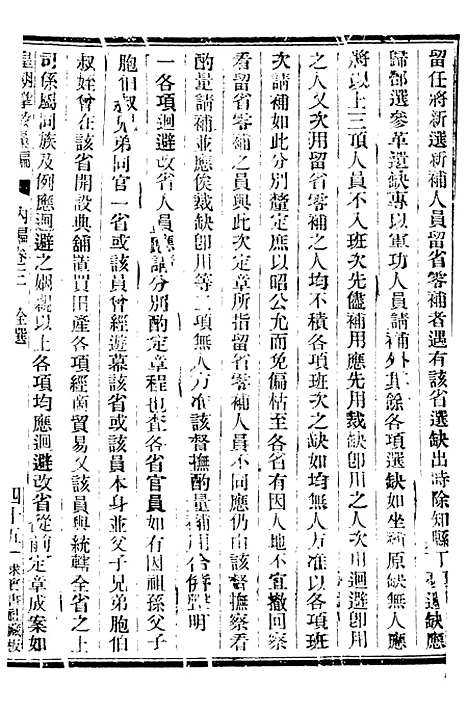 留任將新選新補人員留省零補者遇有該省選缺出時除知縣丁憂遺缺應
歸部選參革遺缺專以軍功人員請補外其餘各項選缺如坐補原缺無人應
將以上三項人員不入班次先儘補用應先用裁缺卽用之人次用迴避卽用
之人又次用留省零補之人均不積各項班次之缺如無三項人員方准以各項班
次請補如此分別釐定庶以昭公允而免偏枯至各省有因人地不宜撤回察
看留省零補之員與此次定章所指留省零補人員不同應仍由該督撫察看
酌量請補並應俟裁缺卽用等三項無人方准該督撫酌量補用合併聲明
一各項迴避改省人員應請分別酌定章程也查各省官員如有因祖孫父子
胞伯叔兄弟同官一省或該員曾經遊幕該省或該員本身並父子兄弟胞伯
叔姪曾在該省開設典舖置買田產各項經商貿易又該員與統轄全省之上
司係屬同族及例應迴避之姻親以上各項均應迴避改省從前定章成案如
皇朝掌故彙編 內編卷三 銓選 四十五 求實書社藏板